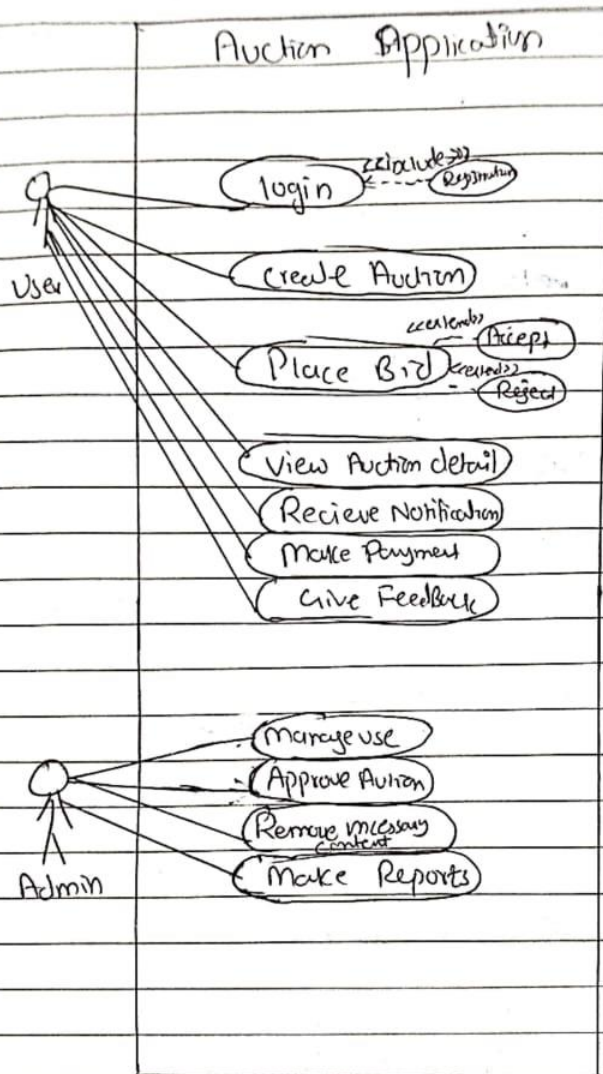 Auction Application
<<include>>
login
Registration
User
Create Auction
<<extend>>
Accept
Place Bid
<<extend>>
Reject
View Auction detail
Recieve Notification
Make Payment
Give FeedBack
Manage use
Approve Aution
Remove
content
Make Reports
Admin